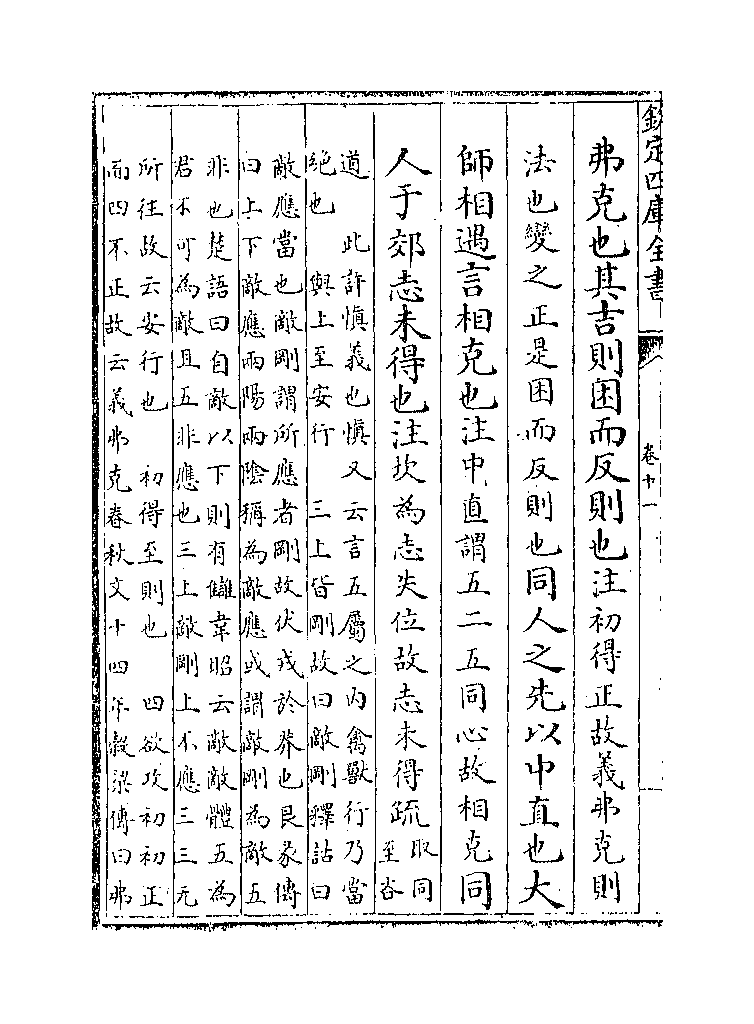 欽定四庫全書 卷十一
弗克也其吉則困而反則也注初得正故義弗克則
法也變之正是困而反則也同人之先以中直也大
師相遇言相克也注中直謂五二五同心故相克同
人于郊志未得也注坎為志失位故志未得疏
取同
至咎
道 此許慎義也慎又云言五屬之内禽獸行乃當
絶也 與上至安行 三上皆剛故曰敵剛釋詁曰
敵應當也敵剛謂所應者剛故伏戎於莽也艮彖傳
曰上下敵應兩陽兩陰稱為敵應或謂敵剛為敵五
非也楚語曰自敵以下則有讎韋昭云敵敵體五為
君不可為敵且五非應也三上敵剛上不應三三无
所往故云安行也 初得至則也 四欲攻初初正
而四不正故云義弗克春秋文十四年穀梁傳曰弗